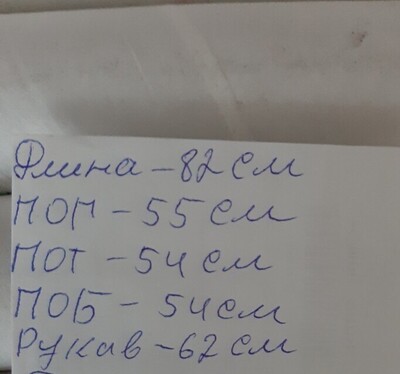 Длина - 82 см
ПОГ - 55 см
ПОТ - 54 см
ПОБ - 54 см
Рукав - 62 см